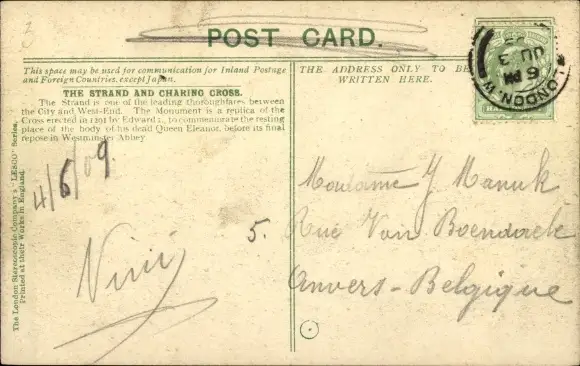 POST CARD.
This space may be used for communication for Inland Postage
and Foreign Countries, except Japan
THE STRAND AND CHARING CROSS.
The Strand is one of the leading thoroughfares between
the City and West-End. The Monument is a replica of the
Cross erected in 1291 by Edward I., to commemorate the resting
place of the body of his dead Queen Eleanor, before its final
repose in Westminster Abbey
THE ADDRESS ONLY TO BE
WRITTEN HERE.
LONDON W
6 PM
JU 3
4/6/09.
Nini
Madame J Manuk
5. Rue Van Boendaele
Anvers-Belgique
The London Stereoscopic Company's "LESCO" Series.
Printed at their Works in England.